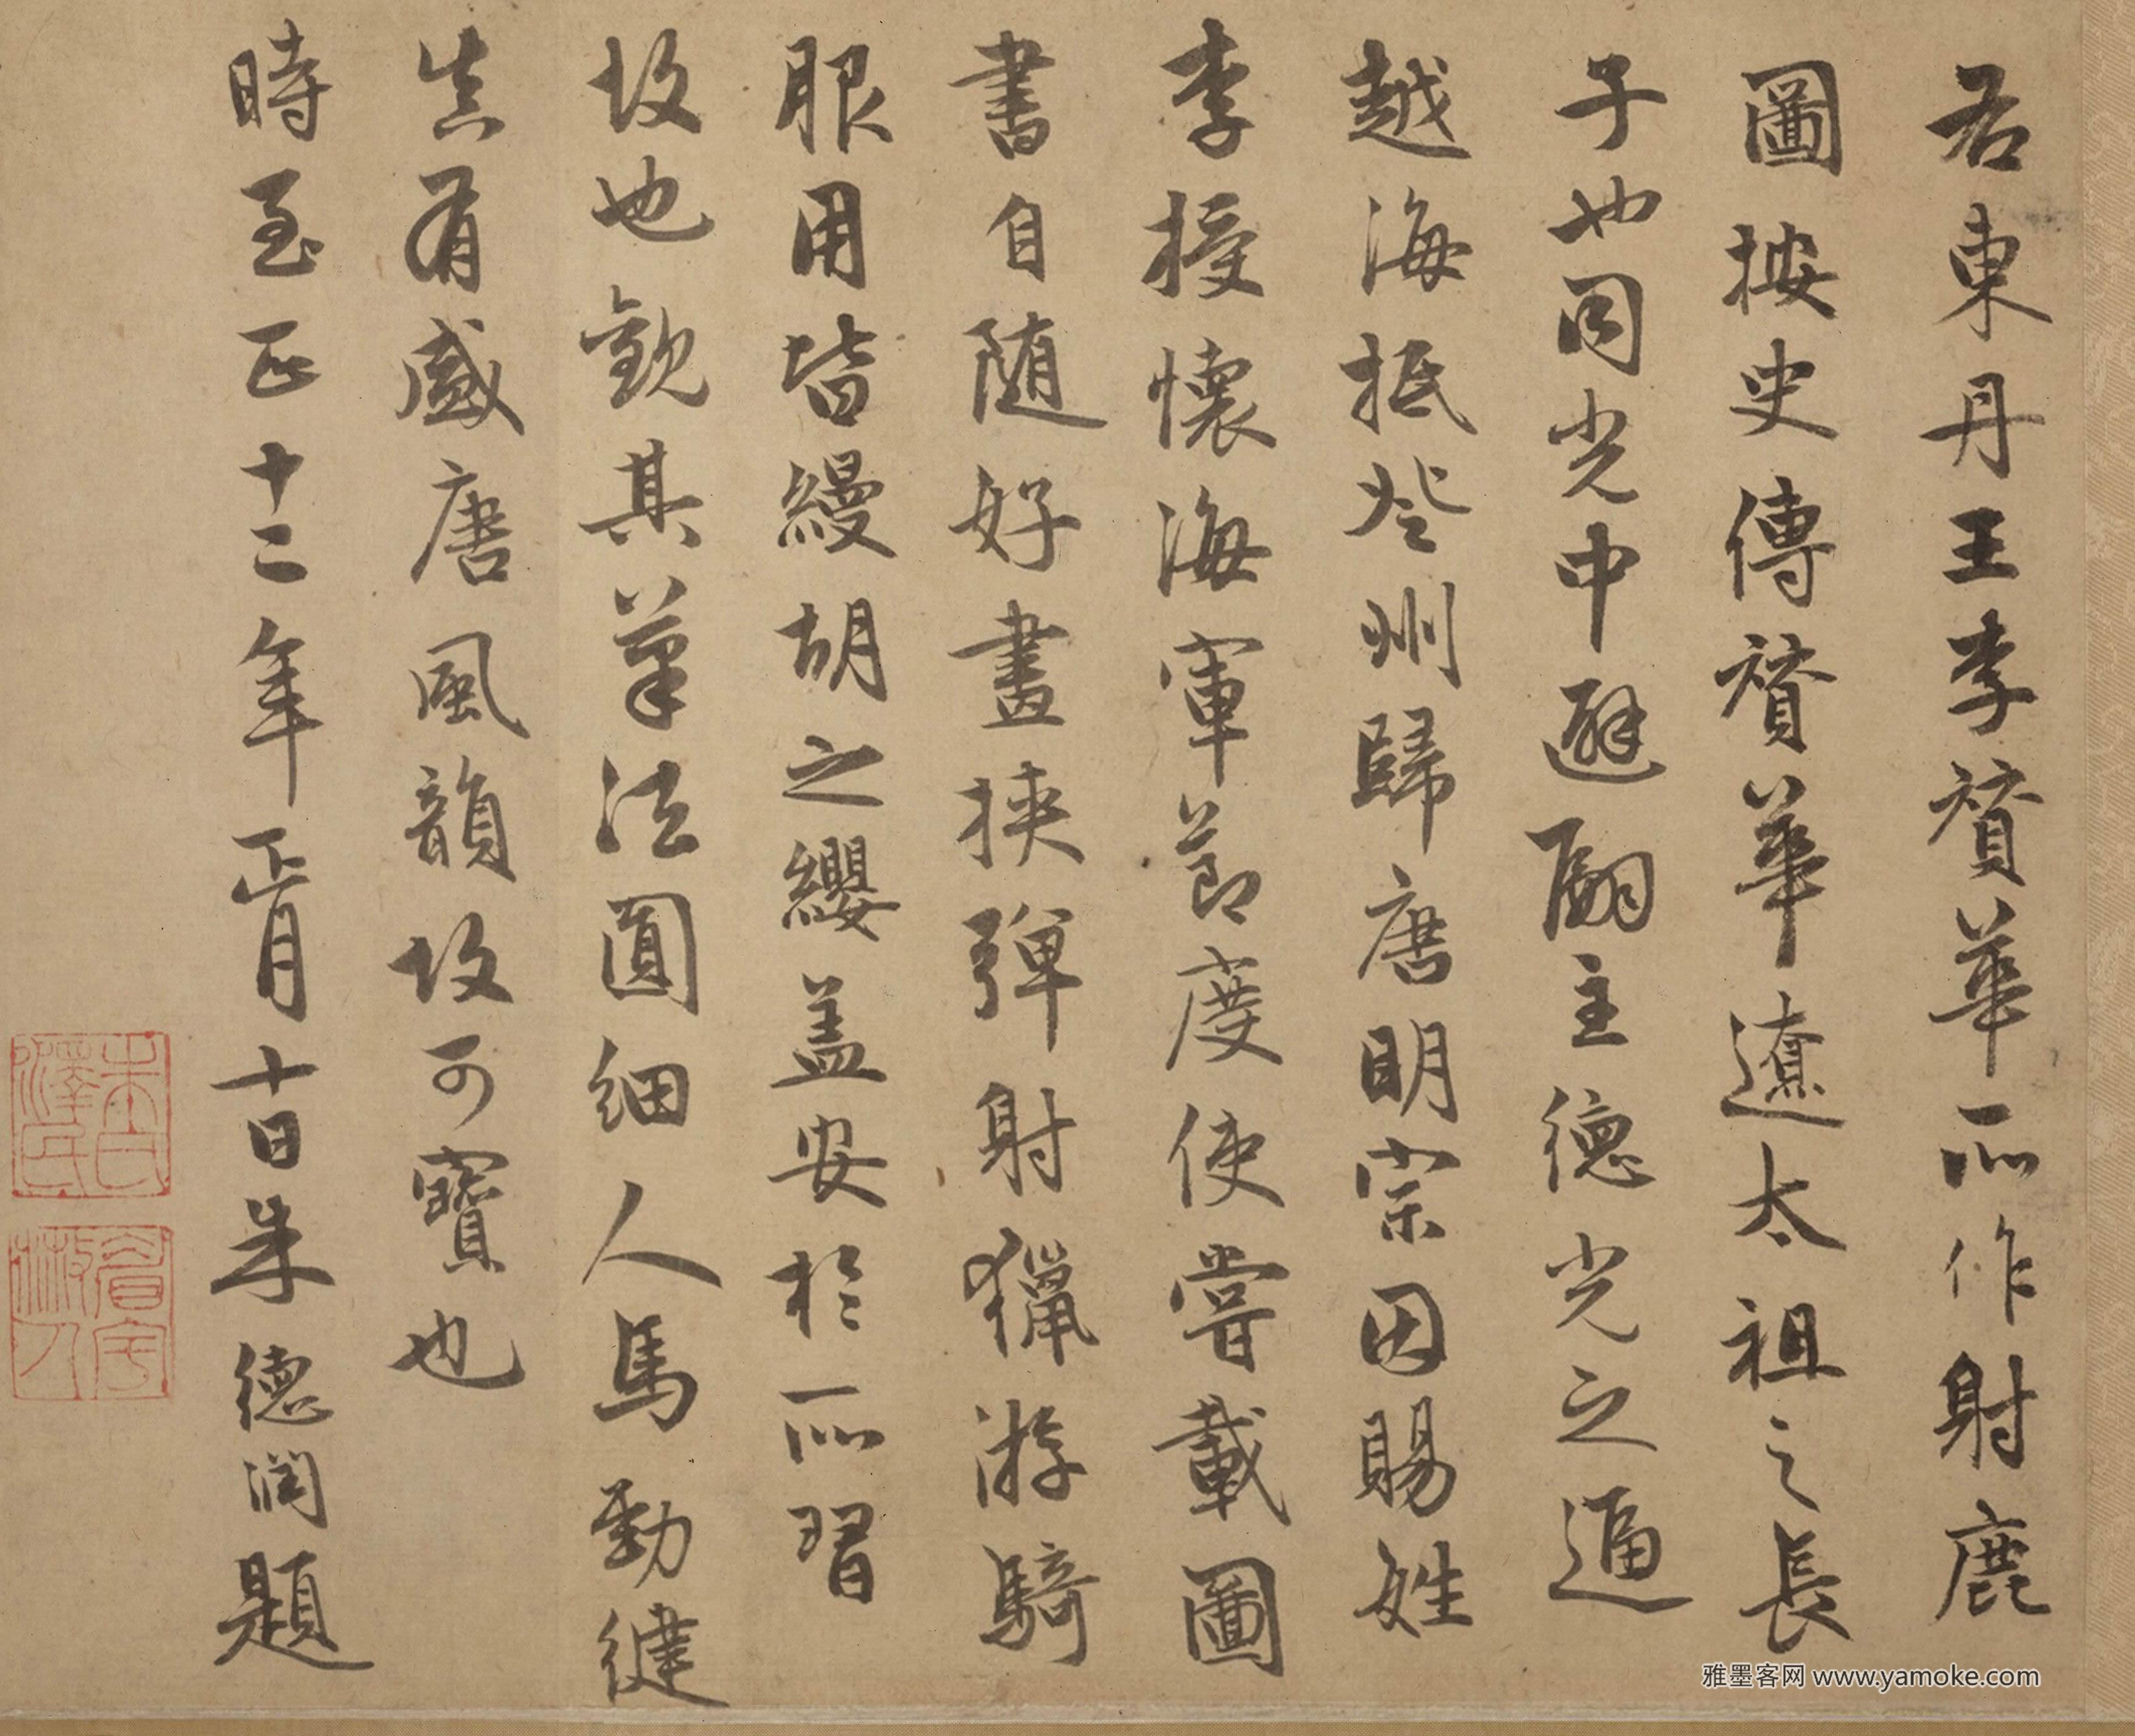 右東丹王李贊華所作射鹿
圖按史傳贊華遼太祖之長
子也同光中避嗣主德光之逼
越海抵登州歸唐明宗因賜姓
李授懷海軍節度使嘗載圖
書自隨好畫挾彈射獵游騎
服用皆縵胡之纓蓋安於所習
故也觀其筆法圓細人馬勁健
真有盛唐風韻故可寶也
時至正十二年正月十日朱德潤題
朱氏澤民
雅墨客网 www.yamoke.com